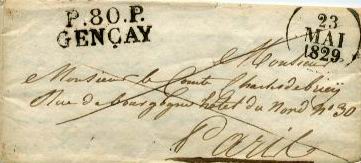 P.80.P.
GENÇAY
23
MAI
1829
Monsieur
Monsieur le Comte Charles de
Rue de bourgogne hotel du Nord nº 30
Paris